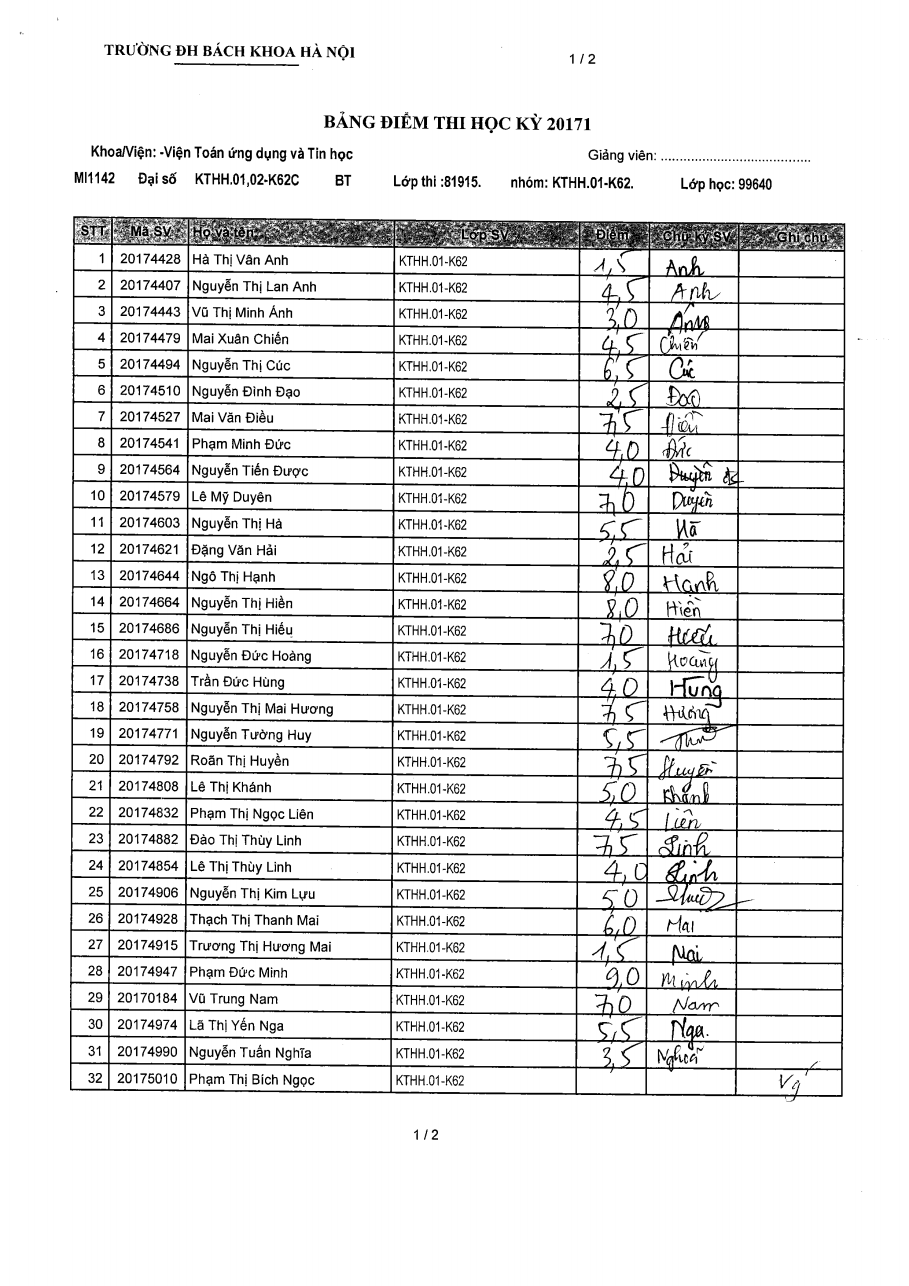 TRƯỜNG ĐH BÁCH KHOA HÀ NỘI
1 / 2
BẢNG ĐIỂM THI HỌC KỲ 20171
Khoa/Viện: -Viện Toán ứng dụng và Tin học Giảng viên: .......................................
MI1142 Đại số KTHH.01,02-K62C BT Lớp thi :81915. nhóm: KTHH.01-K62. Lớp học: 99640
STT Mã SV Họ và tên Lớp SV Điểm Chữ ký SV Ghi chú
1 20174428 Hà Thị Vân Anh KTHH.01-K62 1,5 Anh
2 20174407 Nguyễn Thị Lan Anh KTHH.01-K62 4,5 Anh
3 20174443 Vũ Thị Minh Ánh KTHH.01-K62 3,0 Ánh
4 20174479 Mai Xuân Chiến KTHH.01-K62 4,5 Chiến
5 20174494 Nguyễn Thị Cúc KTHH.01-K62 6,5 Cúc
6 20174510 Nguyễn Đình Đạo KTHH.01-K62 2,5 Đạo
7 20174527 Mai Văn Điều KTHH.01-K62 7,5 Điều
8 20174541 Phạm Minh Đức KTHH.01-K62 4,0 Đức
9 20174564 Nguyễn Tiến Được KTHH.01-K62 4,0
10 20174579 Lê Mỹ Duyên KTHH.01-K62 7,0 Duyên
11 20174603 Nguyễn Thị Hà KTHH.01-K62 5,5 Hà
12 20174621 Đặng Văn Hải KTHH.01-K62 2,5 Hải
13 20174644 Ngô Thị Hạnh KTHH.01-K62 8,0 Hạnh
14 20174664 Nguyễn Thị Hiền KTHH.01-K62 8,0 Hiền
15 20174686 Nguyễn Thị Hiếu KTHH.01-K62 7,0 Hiếu
16 20174718 Nguyễn Đức Hoàng KTHH.01-K62 1,5 Hoàng
17 20174738 Trần Đức Hùng KTHH.01-K62 4,0 Hùng
18 20174758 Nguyễn Thị Mai Hương KTHH.01-K62 7,5 Hương
19 20174771 Nguyễn Tường Huy KTHH.01-K62 5,5
20 20174792 Roãn Thị Huyền KTHH.01-K62 7,5 Huyền
21 20174808 Lê Thị Khánh KTHH.01-K62 5,0 Khánh
22 20174832 Phạm Thị Ngọc Liên KTHH.01-K62 4,5 Liên
23 20174882 Đào Thị Thùy Linh KTHH.01-K62 7,5 Linh
24 20174854 Lê Thị Thùy Linh KTHH.01-K62 4,0 Linh
25 20174906 Nguyễn Thị Kim Lựu KTHH.01-K62 5,0
26 20174928 Thạch Thị Thanh Mai KTHH.01-K62 6,0 Mai
27 20174915 Trương Thị Hương Mai KTHH.01-K62 1,5 Mai
28 20174947 Phạm Đức Minh KTHH.01-K62 9,0 Minh
29 20170184 Vũ Trung Nam KTHH.01-K62 7,0 Nam
30 20174974 Lã Thị Yến Nga KTHH.01-K62 5,5 Nga.
31 20174990 Nguyễn Tuấn Nghĩa KTHH.01-K62 3,5 Nghĩa
32 20175010 Phạm Thị Bích Ngọc KTHH.01-K62 Vg
1 / 2